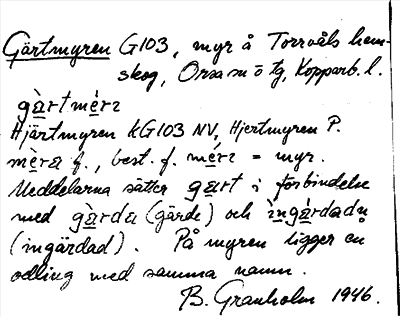 Gärtmyren G103, myr å Torrvåls hem-
skog, Orsa sn ö tg, Kopparb. l.
gàrtmérɛ
Hjärtmyren kG103 NV, Hjertmyren P.
mèra f., best. f. mérɛ = myr.
Meddelarna sätter gart i förbindelse
med gàrda (gärde) och ìngárdadu
(ingärdad). På myren ligger en
odling med samma namn.
B. Granholm 1946.